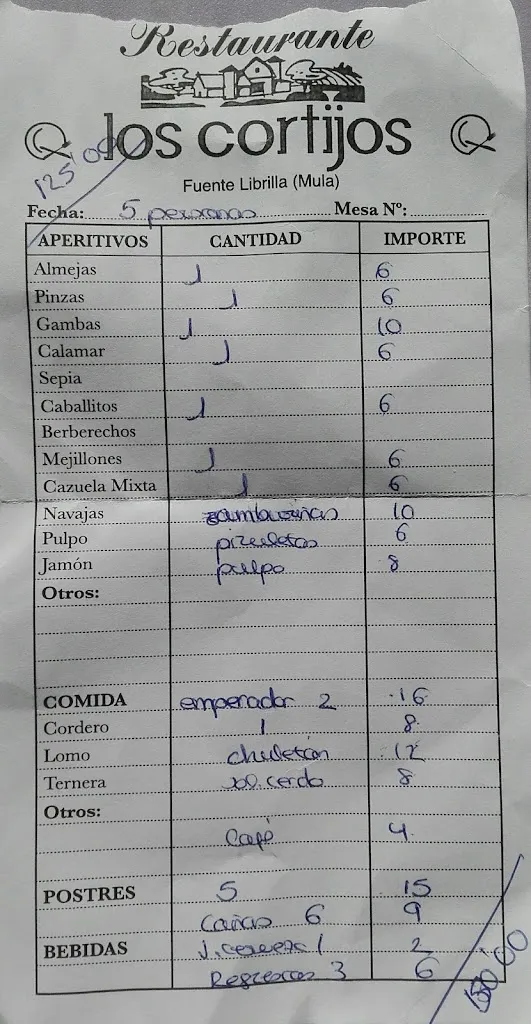 Restaurante
los cortijos
125'00
Fuente Librilla (Mula)
Fecha: 5 personas Mesa Nº:
APERITIVOS CANTIDAD IMPORTE
Almejas 1 6
Pinzas 1 6
Gambas 1 10
Calamar 1 6
Sepia
Caballitos 1 6
Berberechos
Mejillones 1 6
Cazuela Mixta 1 6
Navajas zamburiñas 10
Pulpo 6
Jamón pulpo 8
Otros:
COMIDA emperador 2 16
Cordero 1 8
Lomo chuletón 12
Ternera cerdo 8
Otros:
Café 4
POSTRES 5 15
Cañas 6 9
BEBIDAS J. cerveza 1 2
Refrescos 3 6